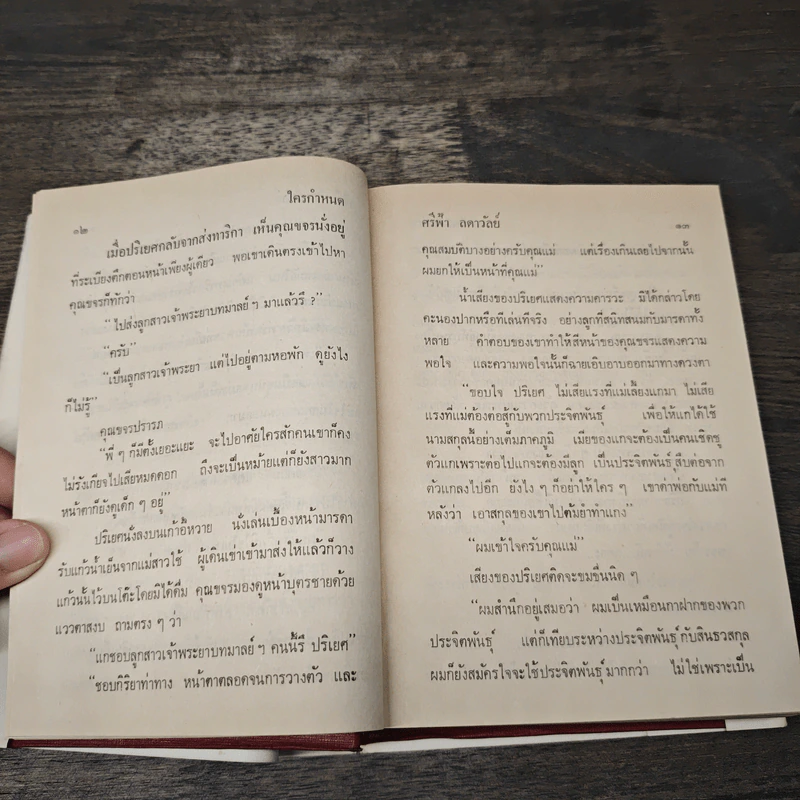 ๑๒
ใครกำหนด
เมื่อปริเยศกลับจากส่งทาริกา เห็นคุณขจรนั่งอยู่
ที่ระเบียงตึกตอนหน้าเพียงผู้เดียว พอเขาเดินตรงเข้าไปหา
คุณขจรก็ทักว่า
“ไปส่งลูกสาวเจ้าพระยาบทมาลย์ ๆ มาแล้วรึ ?”
“ครับ”
“เป็นลูกสาวเจ้าพระยา แต่ไปอยู่ตามหอพัก ดูยังไง
ก็ไม่รู้”
คุณขจรปรารภ
“พี่ ๆ ก็มีตั้งเยอะแยะ จะไปอาศัยใครสักคนเขาก็คง
ไม่รังเกียจไปเสียหมดดอก ถึงจะเป็นหม้ายแต่ก็ยังสาวมาก
หน้าตาก็ยังดูเด็ก ๆ อยู่”
ปริเยศนั่งลงบนเก้าอี้หวาย นั่งเล่นเบื้องหน้ามารดา
รับแก้วน้ำเย็นจากแม่สาวใช้ ผู้เดินเข่าเข้ามาส่งให้แล้วก็วาง
แก้วนั้นไว้บนโต๊ะโดยมิได้ดื่ม คุณขจรมองดูหน้าบุตรชายด้วย
แววตาสงบ ถามตรง ๆ ว่า
“แกชอบลูกสาวเจ้าพระยาบทมาลย์ ๆ คนนี้รึ ปริเยศ”
“ชอบกิริยาท่าทาง หน้าตาตลอดจนการวางตัว และ
ศรีฟ้า ลดาวัลย์
๑๓
คุณสมบัติบางอย่างครับคุณแม่ แต่เรื่องเกินเลยไปจากนั้น
ผมยกให้เป็นหน้าที่คุณแม่”
น้ำเสียงของปริเยศแสดงความคารวะ มิได้กล่าวโดย
คะนองปากหรือทีเล่นทีจริง อย่างลูกที่สนิทสนมกับมารดาทั้ง
หลาย คำตอบของเขาทำให้สีหน้าของคุณขจรแสดงความ
พอใจ และความพอใจนั้นก็ฉายเอิบอาบออกมาทางดวงตา
“ขอบใจ ปริเยศ ไม่เสียแรงที่แม่เลี้ยงแกมา ไม่เสีย
แรงที่แม่ต้องต่อสู้กับพวกประจิตพันธุ์ เพื่อให้แกได้ใช้
นามสกุลนี้อย่างเต็มภาคภูมิ เมียของแกจะต้องเป็นคนเชิดชู
ตัวแกเพราะต่อไปแกจะต้องมีลูก เป็นประจิตพันธุ์สืบต่อจาก
ตัวแกลงไปอีก ยังไง ๆ ก็อย่าให้ใคร ๆ เขาด่าพ่อกับแม่ที
หลังว่า เอาสกุลของเขาไปต้มยำทำแกง”
“ผมเข้าใจครับคุณแม่”
เสียงของปริเยศติดจะขมขื่นนิด ๆ
“ผมสำนึกอยู่เสมอว่า ผมเป็นเหมือนกาฝากของพวก
ประจิตพันธุ์ แต่ก็เทียบระหว่างประจิตพันธุ์กับสินธวสกุล
ผมก็ยังสมัครใจจะใช้ประจิตพันธุ์มากกว่า ไม่ใช่เพราะเป็น